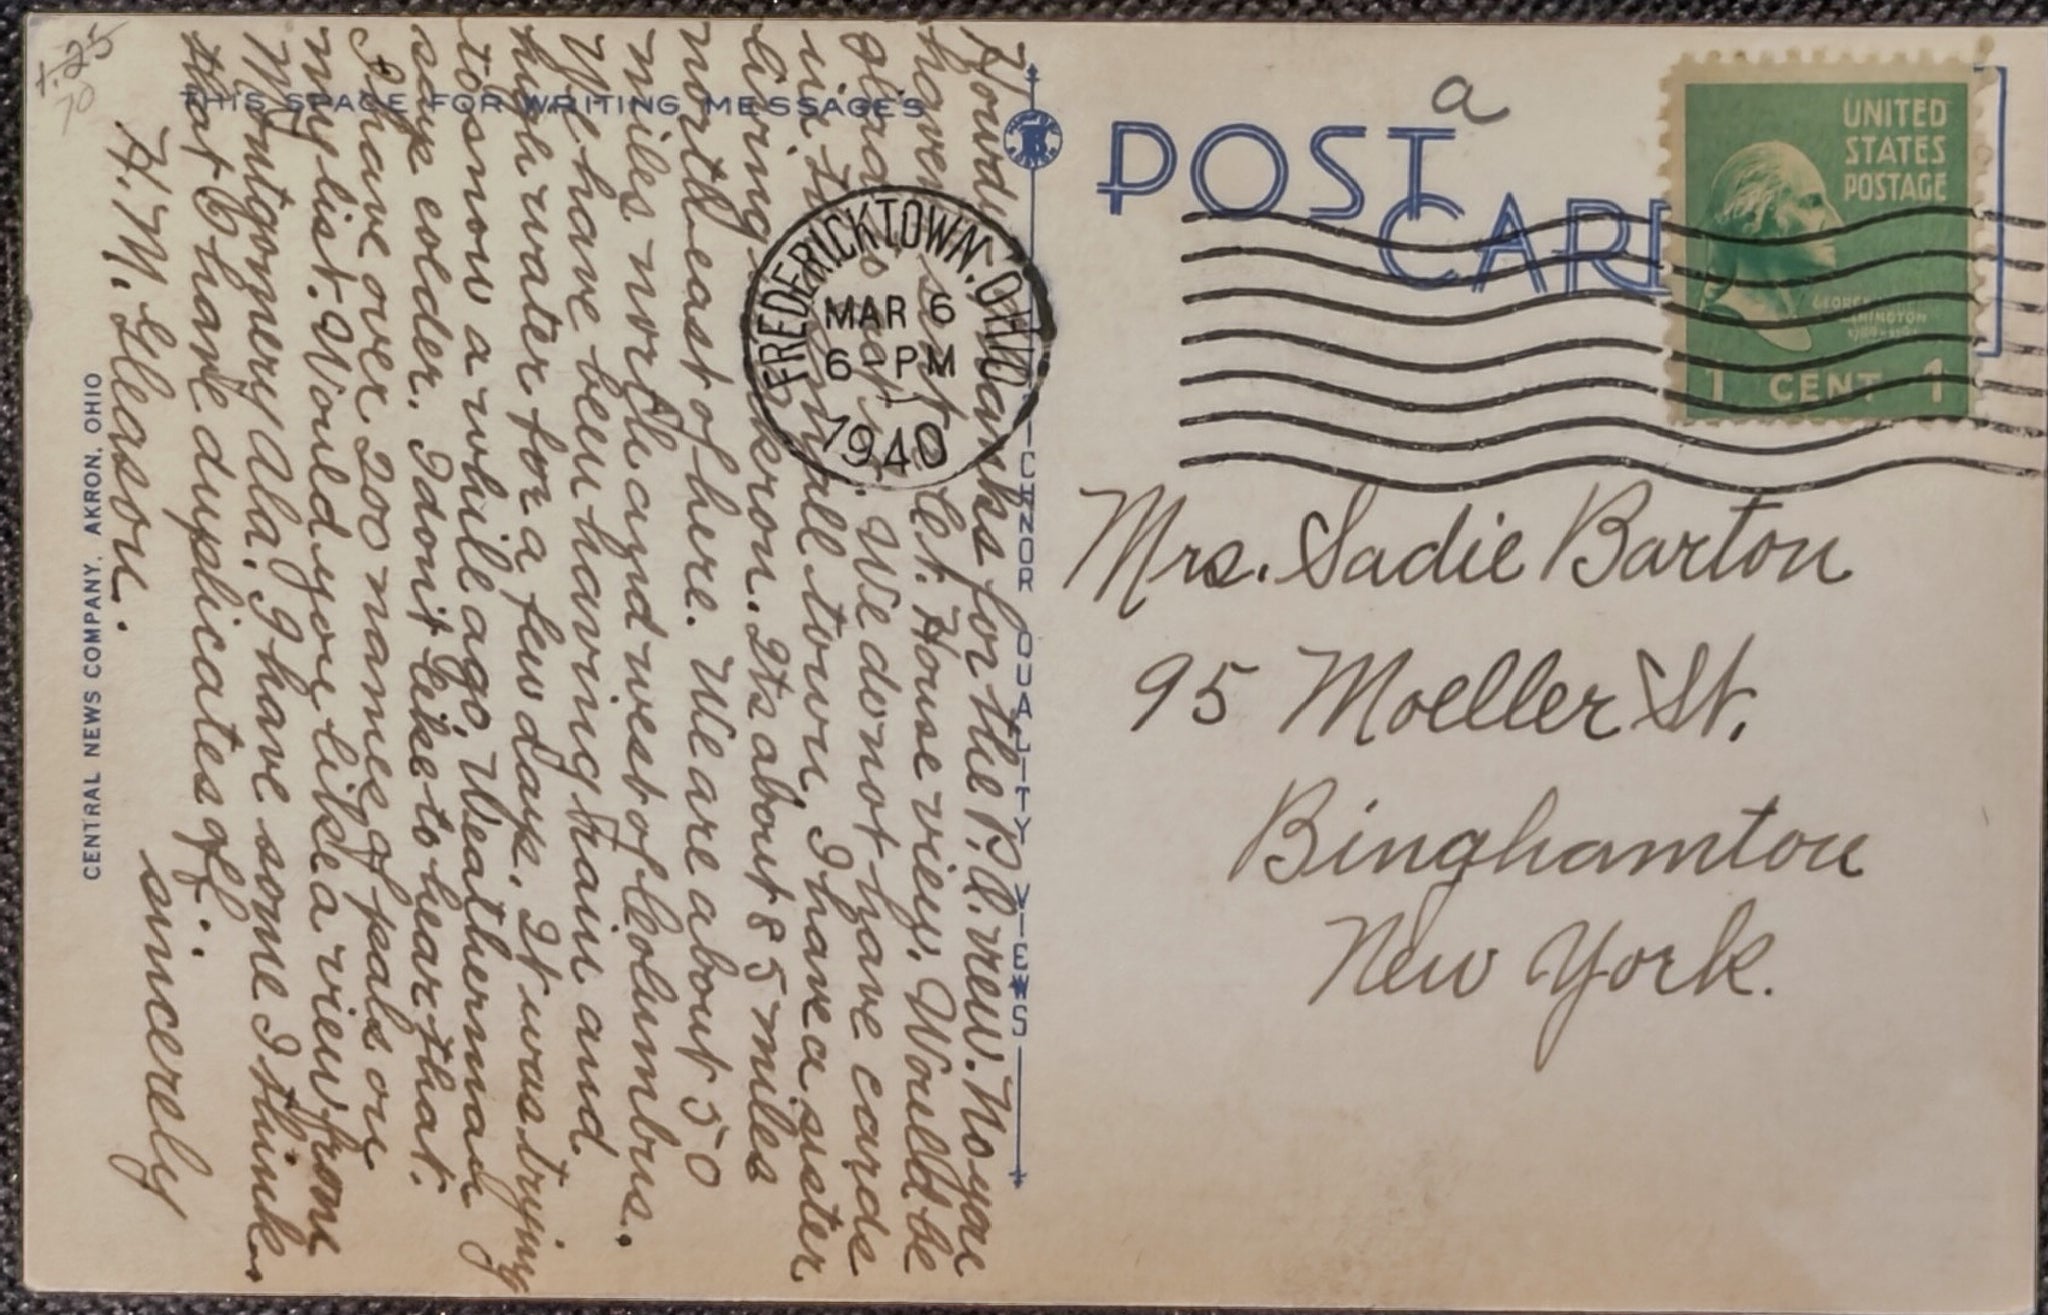 1.25
70
THIS SPACE FOR WRITING MESSAGES
Howdy. Thanks for the P.O. view. No you
haven't sent a Ct. House view. Would be
glad to get it. We do not have cards
in this small town. I have a sister
living in Akron. Its about 85 miles
northeast of here. We are about 50
miles north and west of Columbus.
We have been having rain and
high water for a few days. It was trying
to snow a while ago. Weatherman
says colder. I don't like to hear that.
I have over 200 names of peals on
my list. Would you like a view from
Montgomery Ala. I have some I think
that I have duplicates of.
sincerely
H. M. Gleason.
CENTRAL NEWS COMPANY, AKRON, OHIO
FREDERICKTOWN. OHIO
MAR 6
6-PM
1940
TICHNOR QUALITY VIEWS
a
POST
CARD
UNITED
STATES
POSTAGE
GEORGE
WASHINGTON
1 CENT 1
Mrs. Sadie Barton
95 Moeller St.
Binghamton
New York.